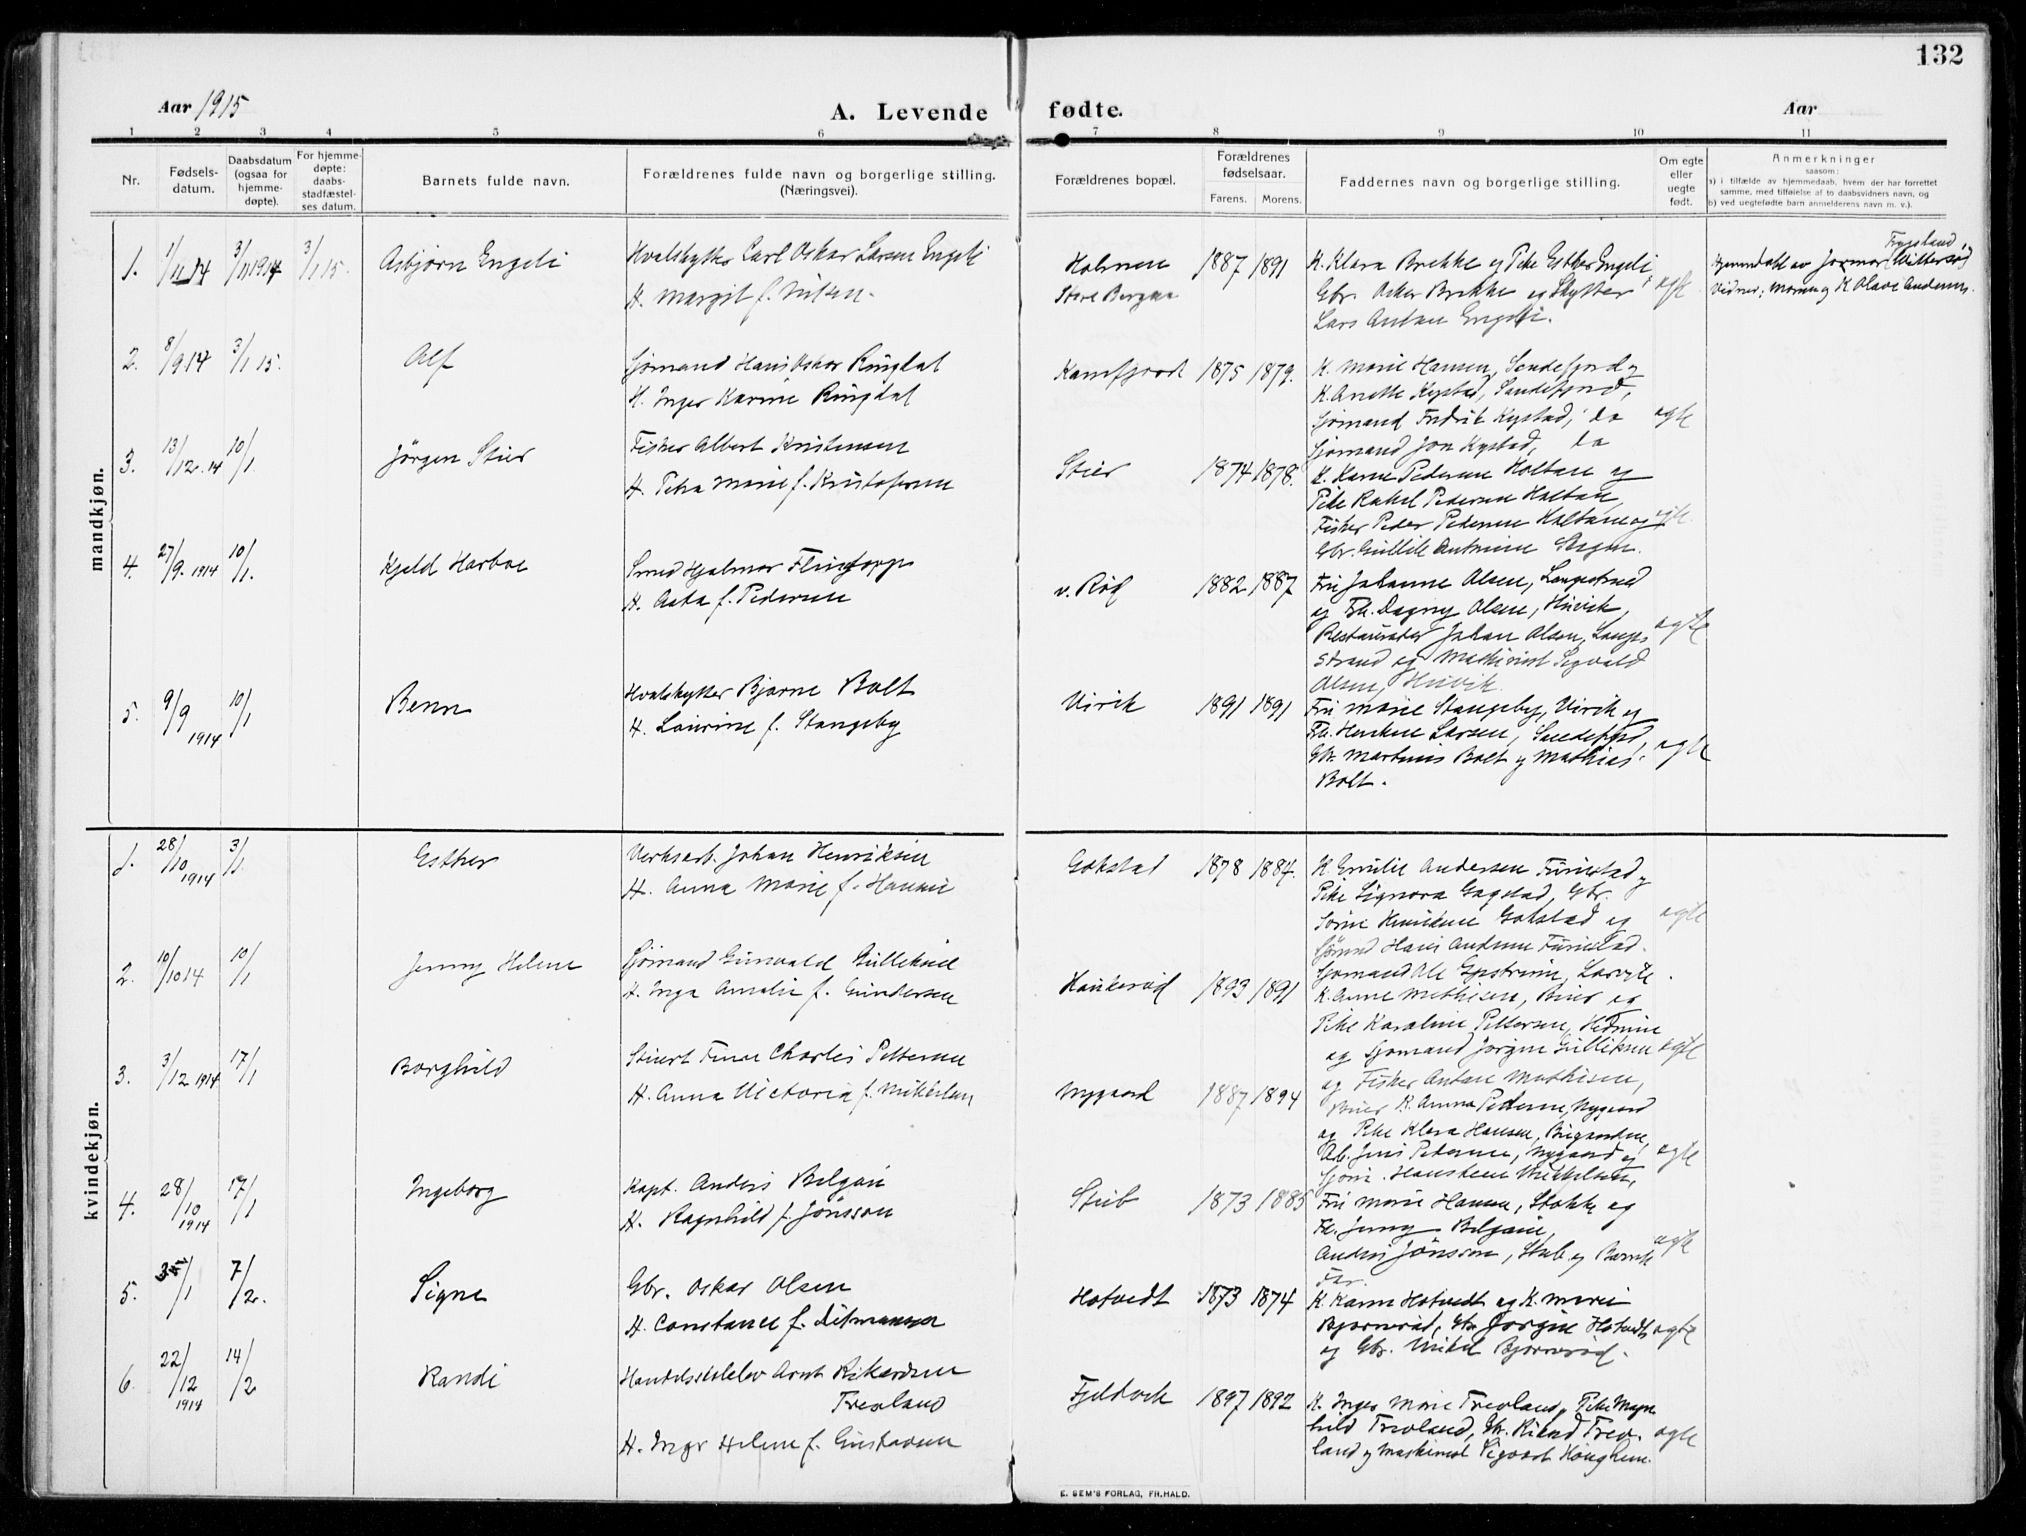 132
Aar 1915
A. Levende fødte.
Aar
1 2 3 4 5 6 7 8 9 10 11
Nr.
Fødsels-
datum.
Daabsdatum
(ogsaa for
hjemme-
døpte).
For hjemme-
døpte:
daabs-
stadfæstel-
ses datum.
Barnets fulde navn.
Forældrenes fulde navn og borgerlige stilling.
(Næringsvei).
Forældrenes bopæl.
Forældrenes
fødselsaar.
Farens. Morens.
Faddernes navn og borgerlige stilling.
Om egte
eller
uegte
født.
Anmerkninger
saasom:
a) i tilfælde av hjemmedaab, hvem der har forrettet
samme, med tilføielse af to daabsvidners navn, og
b) ved uegtefødte barn anmelderens navn m. v.).
mandkjøn.
1. 1/11 14 3/11 1914 3/1 15. Asbjørn Engeli
Hvalskytter Carl Oskar Larsen Engeli
H. Margit f. Nilsen
Holmen 1887 1891
Store Bergan
K. Klara Brekke og Pike Esther Engeli,
Gbr. Oskar Brekke og Skytter
Lars Anton Engeli.
egte
Hjemmedøbt av Jormor
Vidner: Moren og K. Olave Andersen
2. 8/9 14 3/1 15. Alf
Sjømand Hans Oskar Ringdal
H. Inger Karine Ringdal
Kamfjord 1875 1879.
K. Marie Hansen, Sandefjord og
K. Anette Kystad, Sandefjord,
Sjømand Fredrik Kystad, do
Sjømand Jon Kystad, do
egte
3. 13/12 14 10/1. Jørgen Stier
Fisker Albert Kristensen
H. Petra Marie f. Kristofersen
Stier 1874 1878.
K. Karen Pedersen Holtan og
Pike Rakel Pedersen Holtan,
Fisker Peder Pedersen Holtan og
Gbr. Gullik Antonsen
egte
4. 27/9. 1914 10/1. Kjeld Harboe
Smed Hjalmar Flintorp
H. Asta f. Pedersen
v. Rød 1882 1887
Fru Johanne Olsen, Langestrand
og Frk. Dagny Olsen, Huvik,
Restauratør Johan Olsen, Lange-
strand og Maskinist Sigvald
Olsen, Huvik.
egte
5. 9/9 1914 10/1 Benn
Hvalskytter Bjarne Bolt
H. Laurine f. Stangeby
Virik 1891 1891
Fru Marie Stangeby, Virik og
Frk. Larsen, Sandefjord,
Gbr. Martinius Bolt og Mathias
Bolt.
egte
kvindekjøn.
1. 28/10 1914 3/1. Esther
Verksarb. Johan Henriksen
H. Anna Marie f. Hansen
Gokstad 1878 1884.
K. Emilie Andersen Furustad og
Pike Signora Gogstad, Gbr.
Sørine Henriksen Gokstad og
Sjømd Hans Andersen Furustad.
egte
2. 10/10 14 10/1 Jenny Helene
Sjømand Gunvald Gulliksen
H. Inga Amalie f. Gundersen
Haukerød 1893 1891
K. Anne Mathisen, og
Pike Karoline Pettersen,
og Sjømand Jørgen Gulliksen
og Fisker Anton Mathisen,
egte
3. 3/12 1914 17/1 Borghild
Stuert Charles Pettersen
H. Anna Victoria f. Mikkelsen
Nygaard 1887 1894
K. Anna Pedersen, Nygaard
og Pike Klara Hansen,
Arb. Jens Pedersen, Nygaard og
Sjøm. Mikkelsen,
egte
4. 28/10 1914 17/1 Ingeborg
Kapt. Anders Belgau
H. Ragnhild f. Jönsson
Stub 1873 1885
Fru Marie Hansen, Stokke og
Frk. Jenny
Anders Jönsson, Stub og Barnets
Far.
egte
5. /1 7/2. Signe
Gbr. Oskar Olsen
H. Constance f. Ditmansen
Hotvedt 1873 1874
K. Karen Hotvedt og K. Marie
Bjørnerød, Gbr. Jørgen Hotvedt
og Gbr. Mikal Bjørnerød.
egte
6. 22/12 1914 14/2 Randi
Handelsskoleelev Arnt Rikardsen
Trevland
H. Inger Helene f. Gustavsen
Fjeldvik 1897 1892
K. Inger Marie Trevland, Pike Magn-
hild Trevland, Gbr. Rikard Trev-
land og Maskinist Sigvart Haughem.
egte
E. SEM'S FORLAG, FR.HALD.